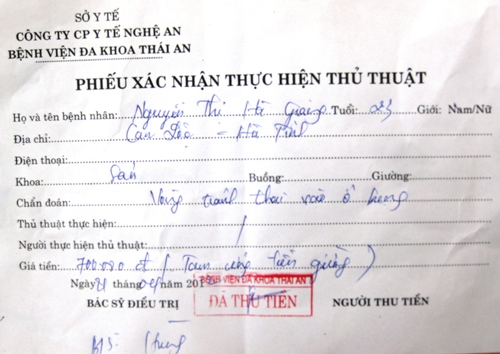 SỞ Y TẾ
CÔNG TY CP Y TẾ NGHỆ AN
BỆNH VIỆN ĐA KHOA THÁI AN
PHIẾU XÁC NHẬN THỰC HIỆN THỦ THUẬT
Họ và tên bệnh nhân: Nguyễn Thị Hà Giang Tuổi: 23 Giới: Nam/Nữ
Địa chỉ: Can Lộc - Hà Tĩnh
Điện thoại:
Khoa: Sản Buồng: Giường:
Chẩn đoán: Vòng tránh thai ổ bụng
Thủ thuật thực hiện: /
Người thực hiện thủ thuật:
Giá tiền: 700.000 đ ( Tạm ứng tiền giường )
Ngày 21 tháng năm 201
BỆNH VIỆN ĐA KHOA THÁI AN
BÁC SỸ ĐIỀU TRỊ ĐÃ THU TIỀN NGƯỜI THU TIỀN
BS.